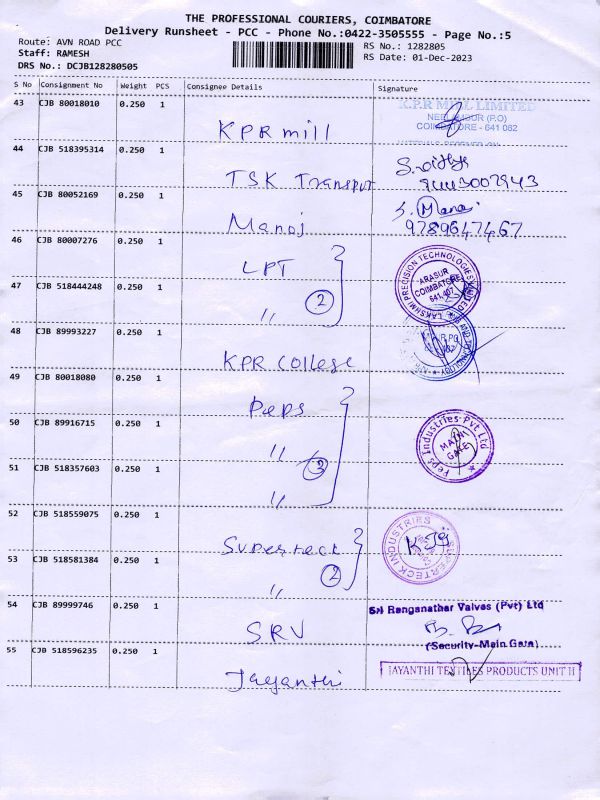 THE PROFESSIONAL COURIERS, COIMBATORE
Delivery Runsheet - PCC - Phone No.:0422-3505555 - Page No.:5
Route: AVN ROAD PCC
RS No.: 1282805
Staff: RAMESH
RS Date: 01-Dec-2023
DRS No.: DCJB128280505
S No Consignment No Weight PCS Consignee Details Signature
43 CJB 80018010 0.250 1
K.P.R MILL LIMITED
COIMBATORE - 641 062
KPR mill
44 CJB 518395314 0.250 1
TSK Transport
45 CJB 80052169 0.250 1
Manoj
9789647467
46 CJB 80007276 0.250 1
LPT
LAKSHMI PRECISION TECHNOLOGIES LIMITED
ARASUR
COIMBATORE
641 407
47 CJB 518444248 0.250 1
〃 2
48 CJB 89993227 0.250 1
KPR College
49 CJB 80018080 0.250 1
Peps
50 CJB 89916715 0.250 1
〃 3
Peps Industries Pvt Ltd
MAIN
GATE
51 CJB 518357603 0.250 1
〃
52 CJB 518559075 0.250 1
Superteck
SUPERTECK INDUSTRIES
53 CJB 518581384 0.250 1
〃 2
54 CJB 89999746 0.250 1
SRV
Sri Ranganathar Valves (Pvt) Ltd
(Security-Main Gate)
55 CJB 518596235 0.250 1
Jayanthi
JAYANTHI TEXTILES PRODUCTS UNIT II